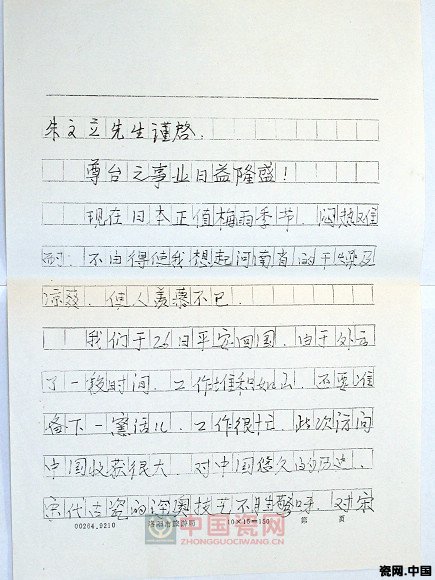 朱文立先生谨啓.
尊台之事业日益隆盛!
现在日本正值梅雨季节.闷热难
耐.不由得使我想起河南省的干燥及
凉爽.但人羡慕不已.
我们于26日平安回国.由于外立
了一段时间.工作堆积如山.还要准
备下一窯活儿.工作很忙.此次访问
中国收获很大.对中国悠久的历史.
宋代古瓷的深奥技艺不胜惊呼.对宋
00264.9210 10×15=150 第 页
中国瓷网
ZHONGGUOCIWANG.COM
瓷网.中国